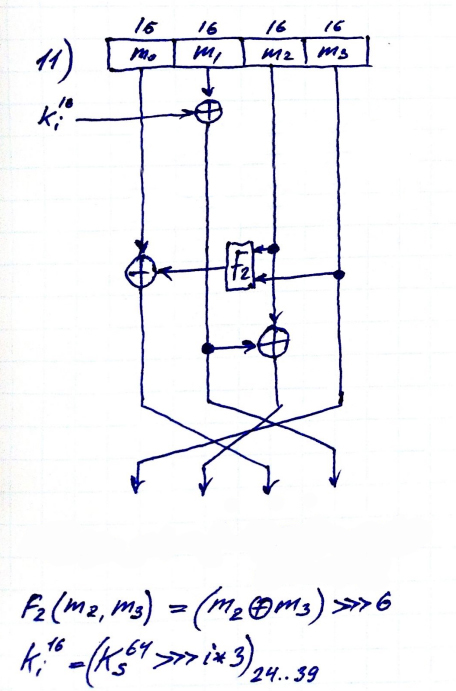 16 16 16 16
11) m₀ m₁ m₂ m₃
Kᵢ¹⁶ ⊕
⊕ F₂
⊕
F₂(m₂, m₃) = (m₂ ⊕ m₃) >>> 6
Kᵢ¹⁶ = (Kₛ⁶⁴ >>> i* 3)₂₄..₃₉